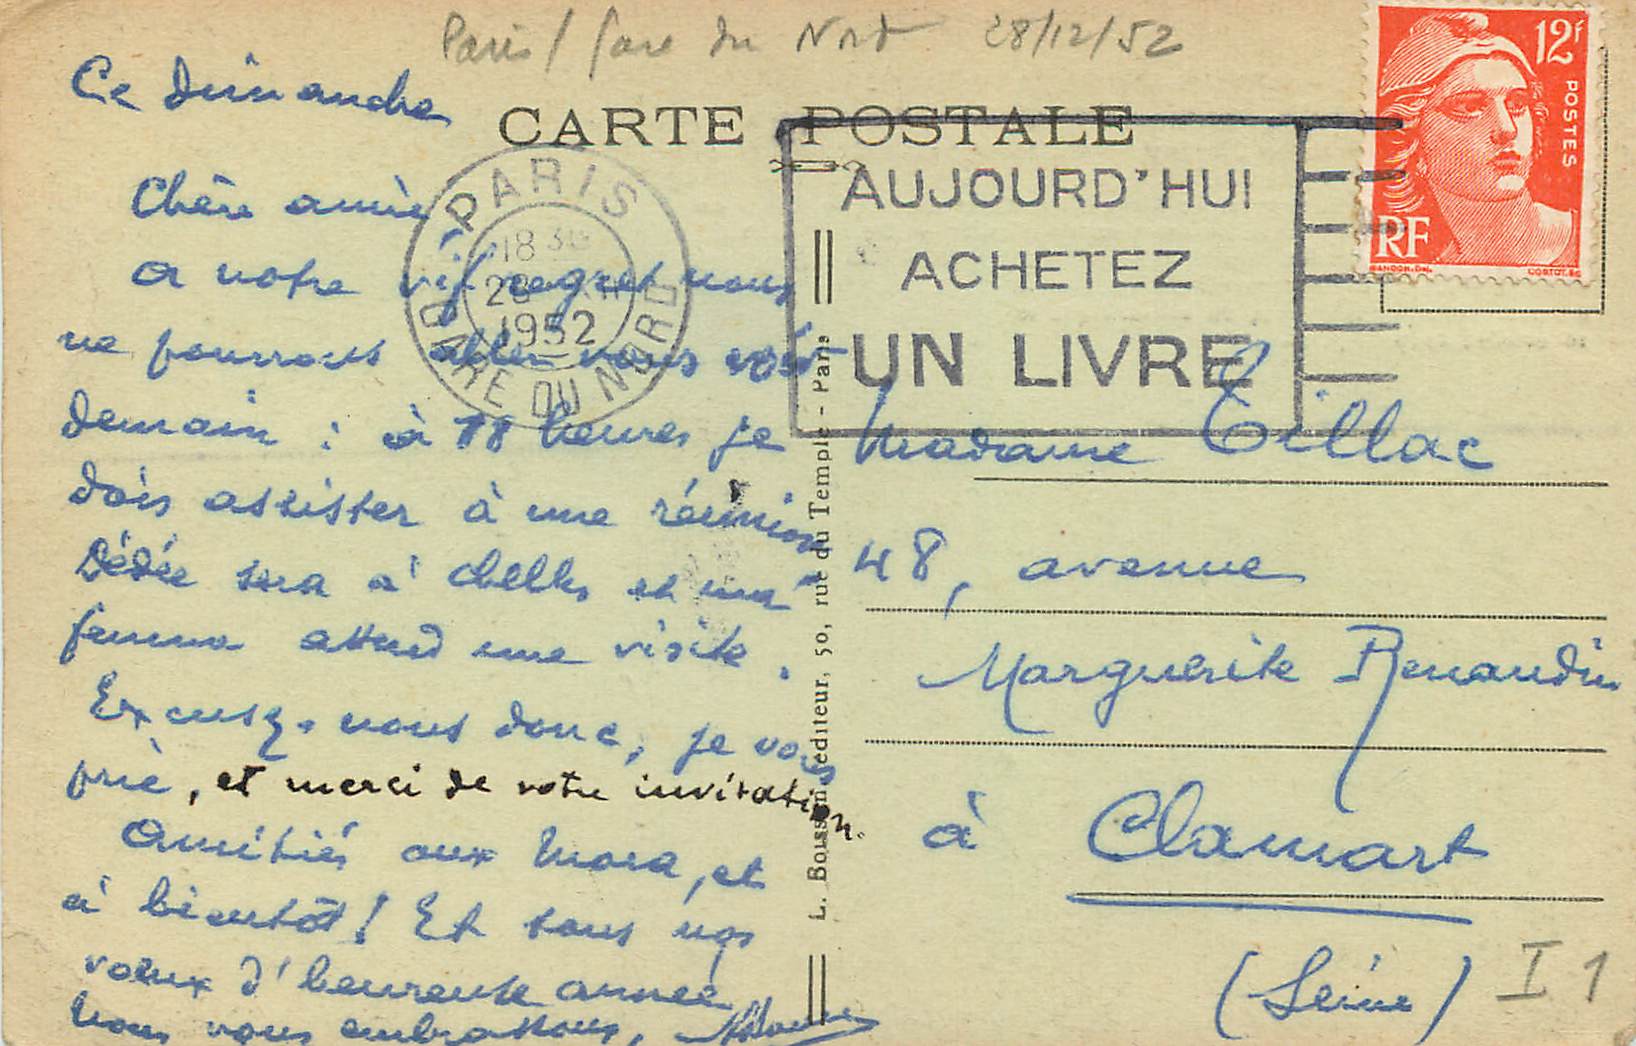 Paris / Gare du Nord 28/12/52
Ce Dimanche
CARTE POSTALE
Chère amie
a notre vif regret nous
ne pourrons aller vous voir
demain : à 18 heures je
dois assister à une réunion
Dédée sera à Chelles et ma
femme attend une visite.
Excusez-nous donc, je vous
prie, et merci de votre invitation.
Amitiés aux Mora, et
à bientôt ! Et tous nos
voeux d'heureuse année
Nous vous embrassons,
PARIS
GARE DU NORD
18 30
28 XII
1952
AUJOURD'HUI
ACHETEZ
UN LIVRE
12f
POSTES
RF
GANDON.DEL.
CORTOT.SC
L. Bousson, éditeur, 50, rue du Temple - Paris
Madame Tillac
48, avenue
Marguerite Renaudin
à Clamart
(Seine)
I 1